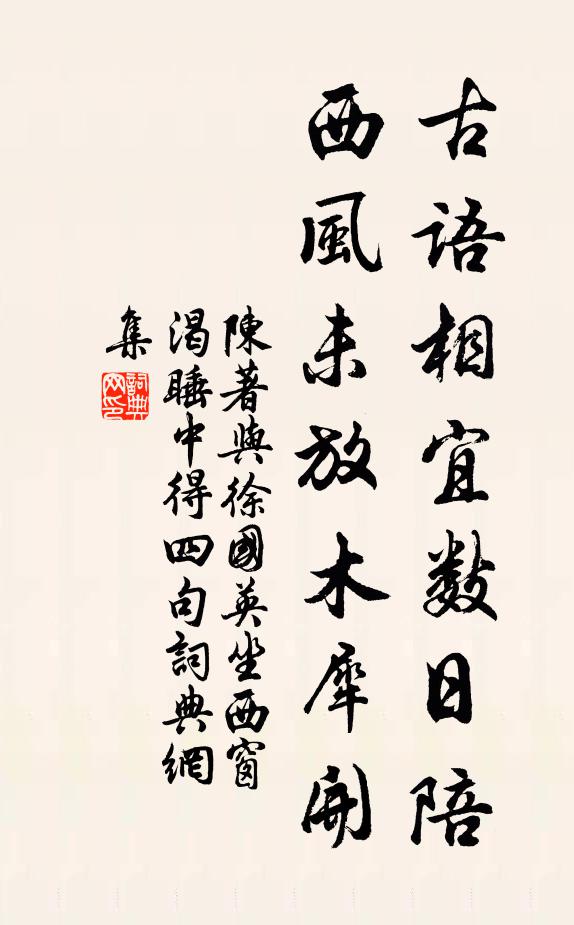 古語相宜數日陪
西風未放木犀開
陳著與徐國英坐西窗
渴睡中得四句詞典網
集
詞典
网印